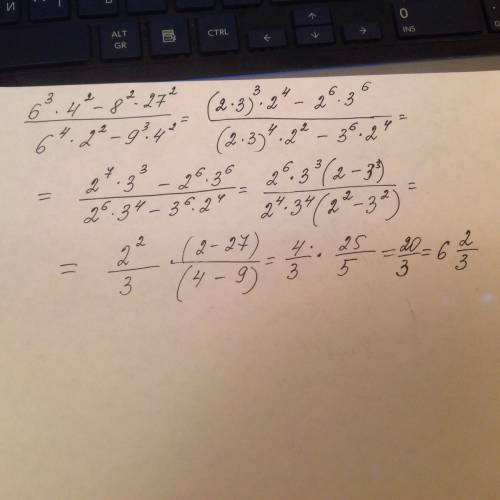 И ALT GR CTRL 0 INS
(6³·4² − 8²·27²)/(6⁴·2² − 9³·4²) = ((2·3)³·2⁴ − 2⁶·3⁶)/((2·3)⁴·2² − 3⁶·2⁴) =
= (2⁷·3³ − 2⁶·3⁶)/(2⁶·3⁴ − 3⁶·2⁴) = (2⁶·3³(2 − 3³))/(2⁴·3⁴(2² − 3²)) =
= 2²/3 · (2 − 27)/(4 − 9) = 4/3 · 25/5 = 20/3 = 6 2/3